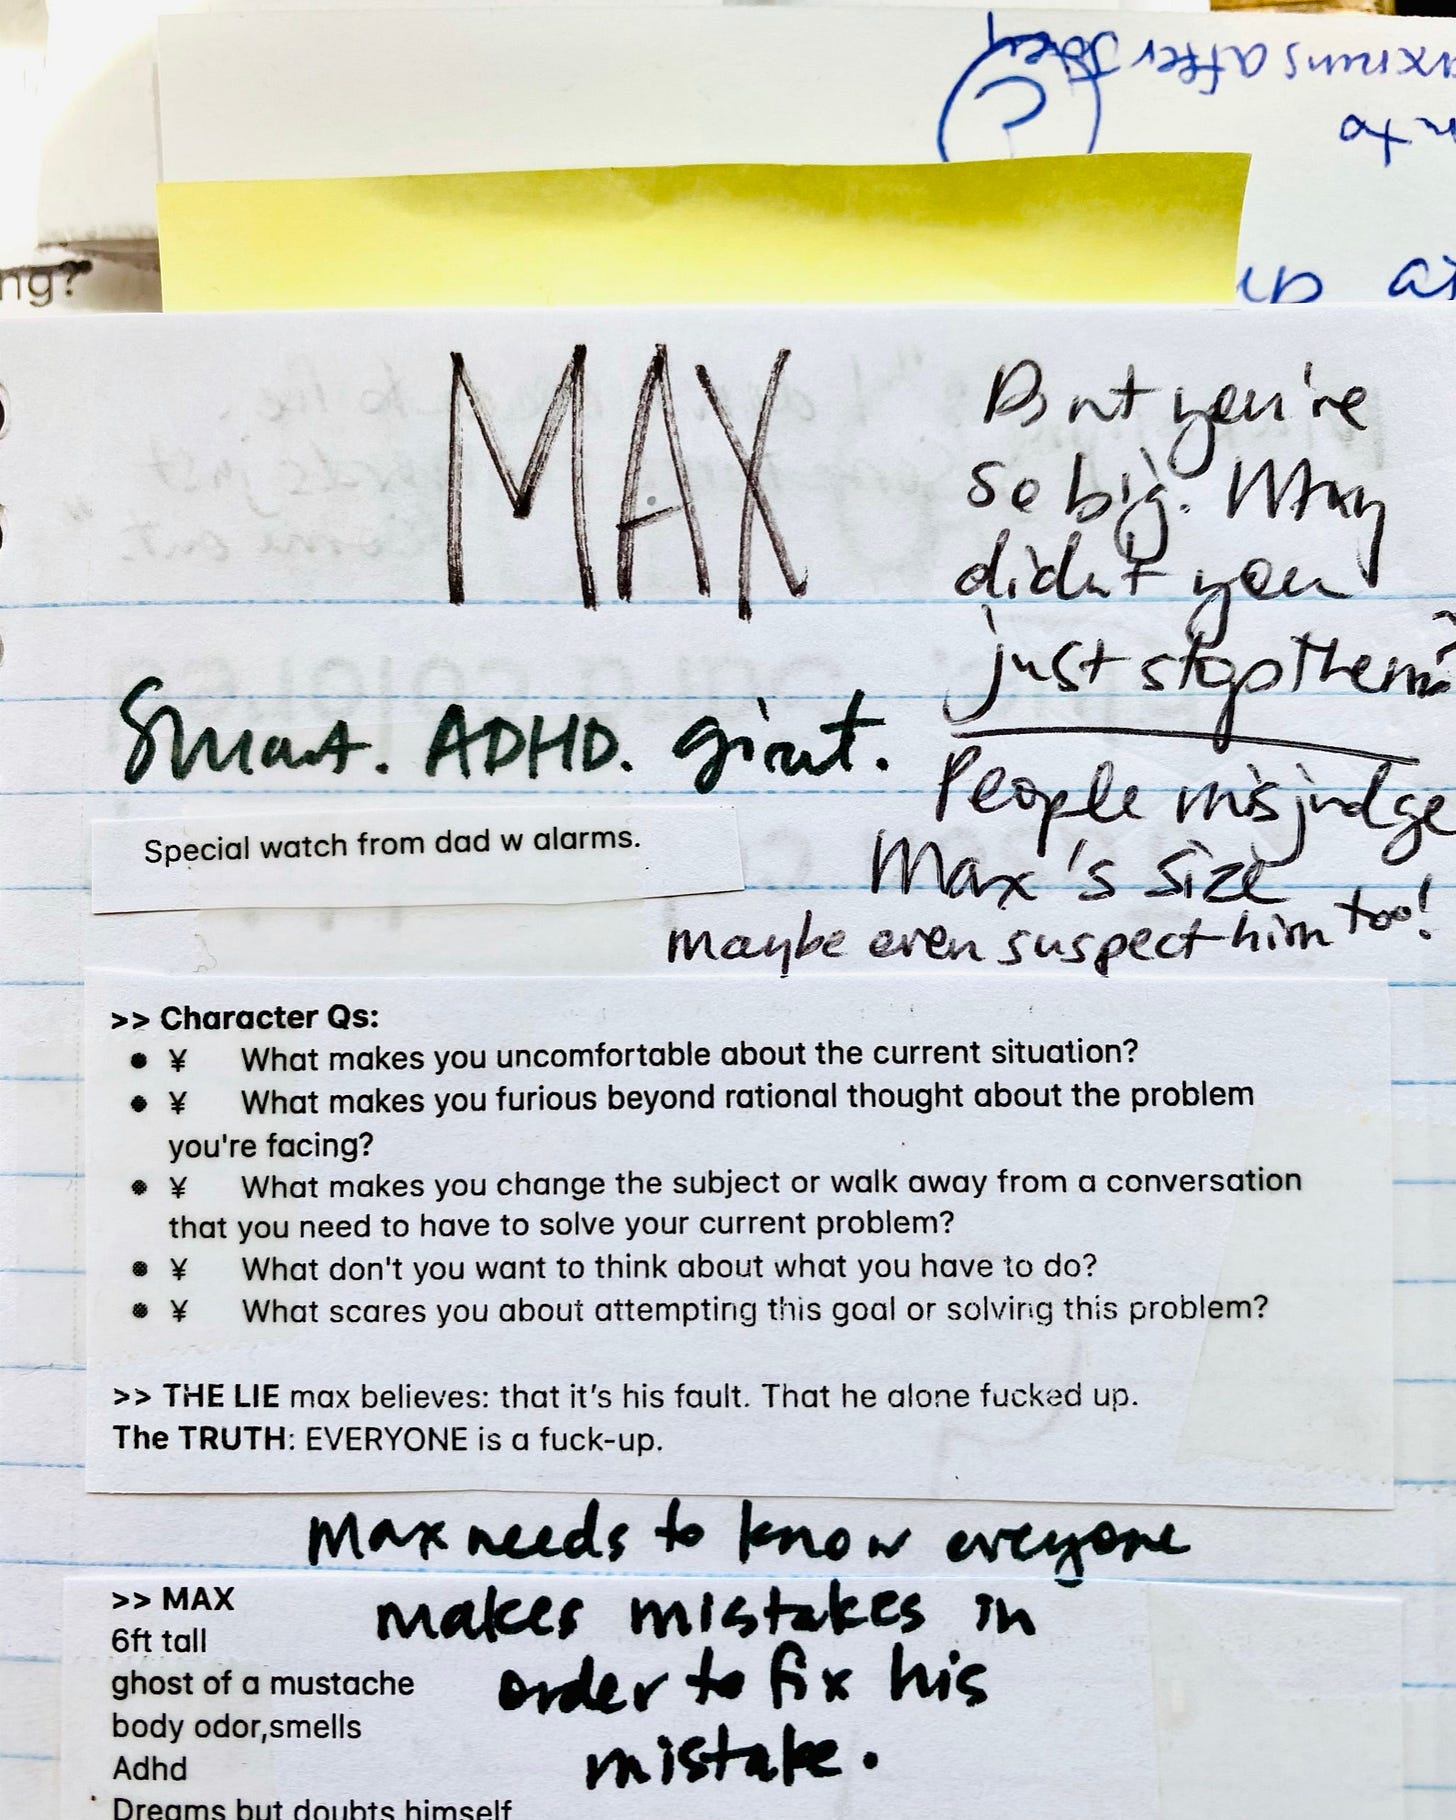 ng?
MAX
But you're
so big. Why
didn't you
just stop them?
Smart. ADHD. giant.
People misjudge
Max's size
maybe even suspect him too!
Special watch from dad w alarms.
>> Character Qs:
● ¥ What makes you uncomfortable about the current situation?
● ¥ What makes you furious beyond rational thought about the problem
you're facing?
● ¥ What makes you change the subject or walk away from a conversation
that you need to have to solve your current problem?
● ¥ What don't you want to think about what you have to do?
● ¥ What scares you about attempting this goal or solving this problem?
>> THE LIE max believes: that it's his fault. That he alone fucked up.
The TRUTH: EVERYONE is a fuck-up.
Max needs to know everyone
makes mistakes in
order to fix his
mistake.
>> MAX
6ft tall
ghost of a mustache
body odor,smells
Adhd
Dreams but doubts himself